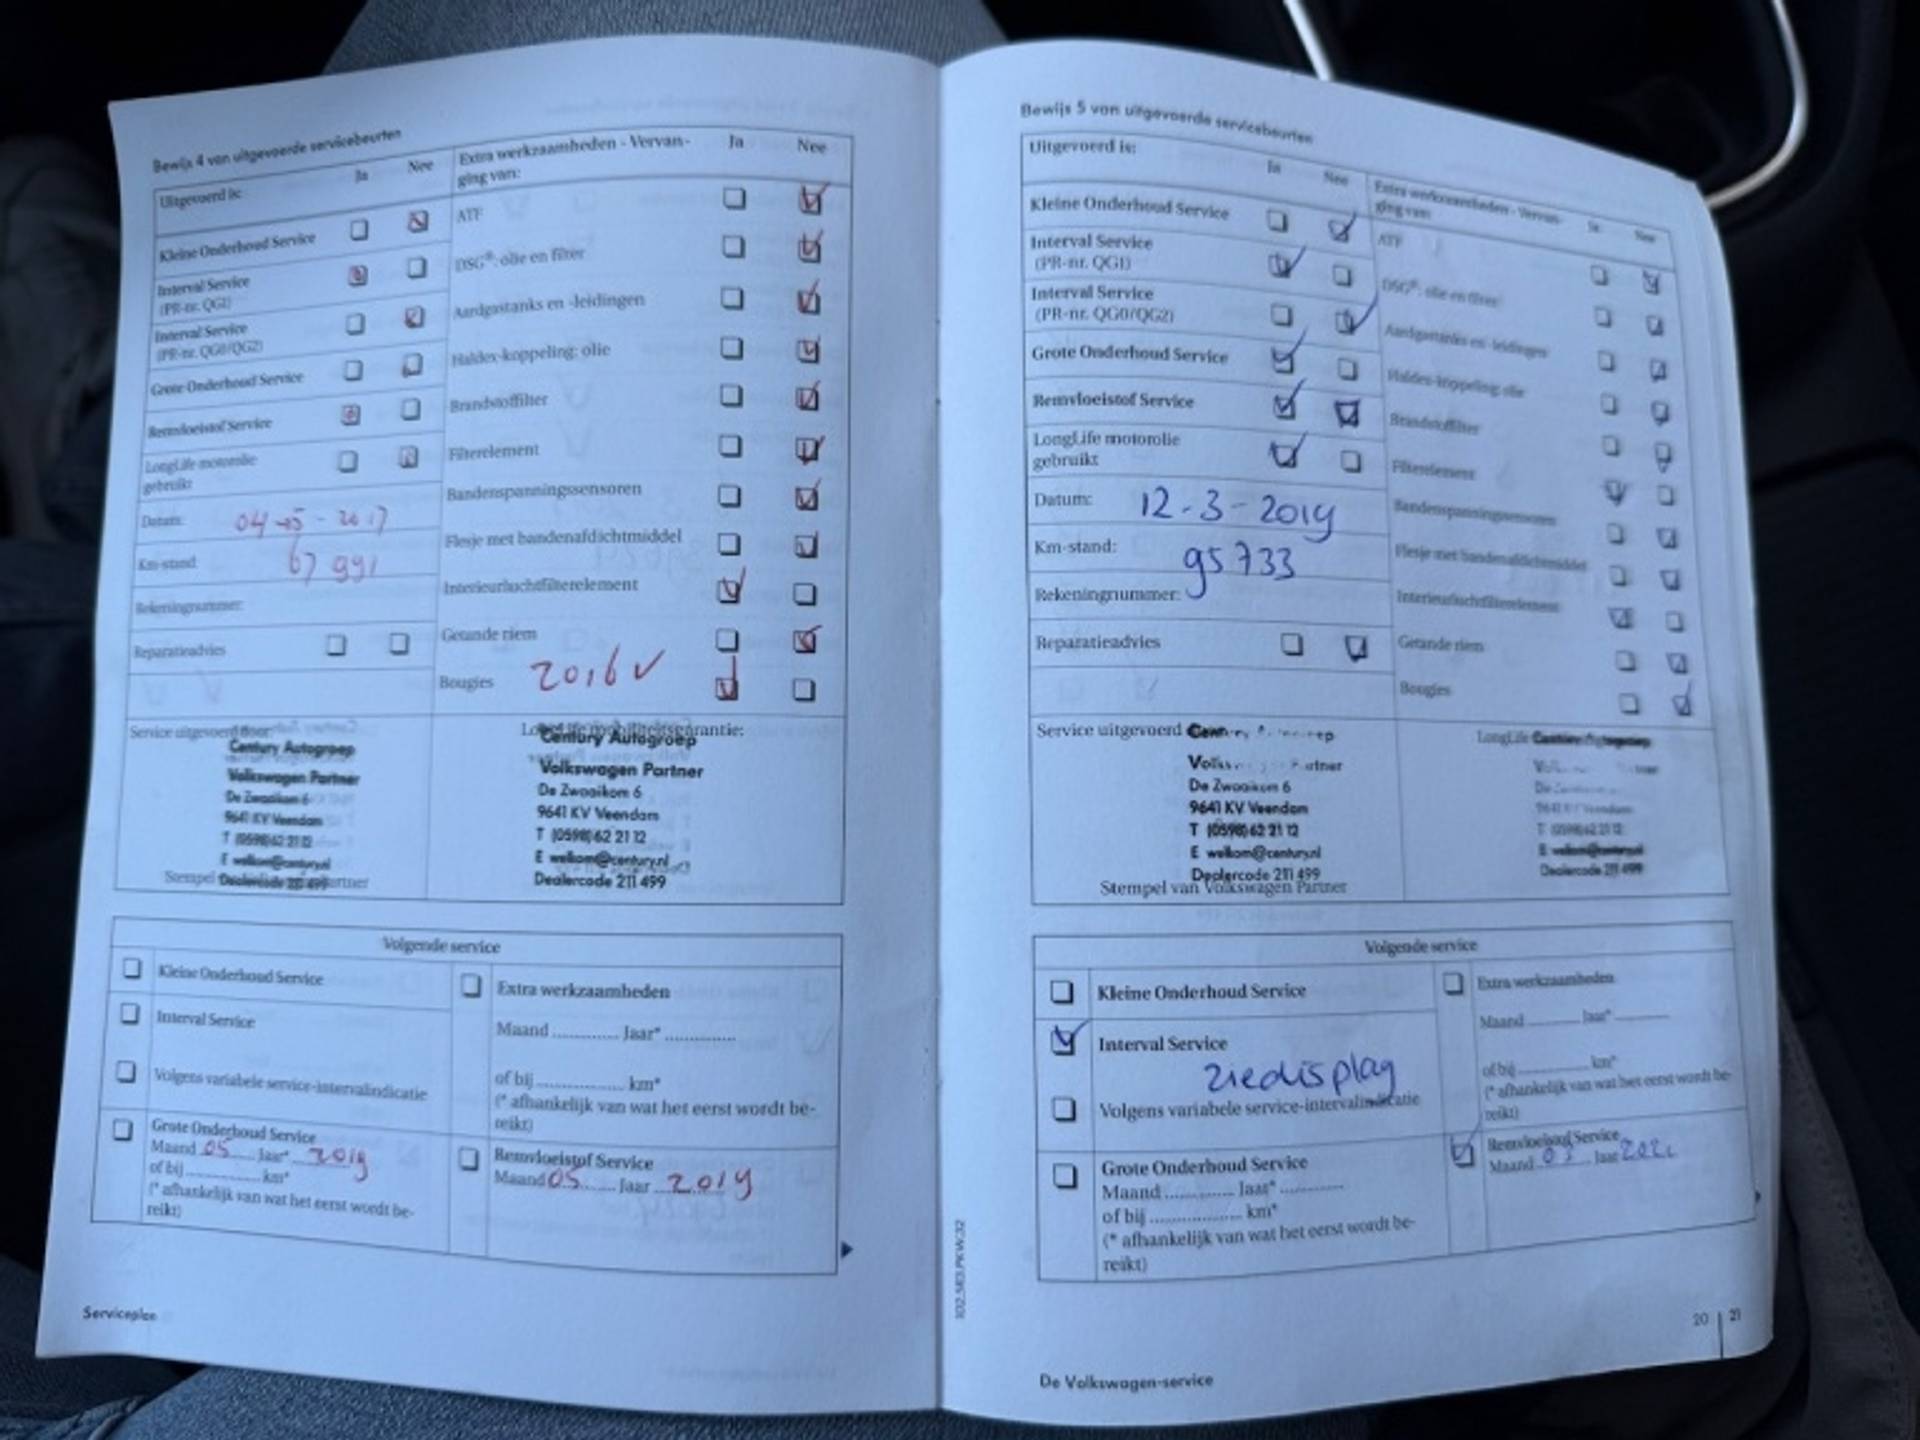 Bewijs 4 van uitgevoerde servicebeurten
Uitgevoerd is: Ja Nee
Kleine Onderhoud Service
Interval Service
(PR-nr. QG1)
Interval Service
(PR-nr. QG0/QG2)
Grote Onderhoud Service
Remvloeistof Service
LongLife motorolie
gebruikt
Datum: 04-05-2017
Km-stand: 67 991
Rekeningnummer:
Reparatieadvies
Extra werkzaamheden - Vervan-
ging van: Ja Nee
ATF
DSG®: olie en filter
Aardgastanks en -leidingen
Haldex-koppeling: olie
Brandstoffilter
Filterelement
Bandenspanningssensoren
Flesje met bandenafdichtmiddel
Interieurluchtfilterelement
Getande riem
Bougies 2016 ✓
Service uitgevoerd door:
Century Autogroep
Volkswagen Partner
De Zwaaikom 6
9641 KV Veendam
T (0598) 62 21 12
E welkom@century.nl
Dealercode 211 499
Stempel
LongLife mobiliteitsgarantie:
Century Autogroep
Volkswagen Partner
De Zwaaikom 6
9641 KV Veendam
T (0598) 62 21 12
E welkom@century.nl
Dealercode 211 499
Volgende service
Kleine Onderhoud Service
Interval Service
Volgens variabele service-intervalindicatie
Grote Onderhoud Service
Maand 05 Jaar* 2019
of bij .................. km*
(* afhankelijk van wat het eerst wordt be-
reikt)
Extra werkzaamheden
Maand ............ Jaar* ............
of bij .................. km*
(* afhankelijk van wat het eerst wordt be-
reikt)
Remvloeistof Service
Maand 05 Jaar 2019
Serviceplan
Bewijs 5 van uitgevoerde servicebeurten
Uitgevoerd is: Ja Nee
Kleine Onderhoud Service
Interval Service
(PR-nr. QG1)
Interval Service
(PR-nr. QG0/QG2)
Grote Onderhoud Service
Remvloeistof Service
LongLife motorolie
gebruikt
Datum: 12-3-2019
Km-stand: 95733
Rekeningnummer:
Reparatieadvies
Extra werkzaamheden - Vervan-
ging van: Ja Nee
ATF
DSG®: olie en filter
Aardgastanks en -leidingen
Haldex-koppeling: olie
Brandstoffilter
Filterelement
Bandenspanningssensoren
Flesje met bandenafdichtmiddel
Interieurluchtfilterelement
Getande riem
Bougies
Service uitgevoerd
De Zwaaikom 6
9641 KV Veendam
T (0598) 62 21 12
E welkom@century.nl
Dealercode 211 499
Stempel van Volkswagen Partner
LongLife
9641 KV Veendam
T (0598) 62 21 12
E welkom@century.nl
Dealercode 211 499
Volgende service
Kleine Onderhoud Service
Interval Service
ziedisplay
Volgens variabele service-intervalindicatie
Grote Onderhoud Service
Maand ............ Jaar* ............
of bij .................. km*
(* afhankelijk van wat het eerst wordt be-
reikt)
Extra werkzaamheden
Maand ............ Jaar* ............
of bij .................. km*
(* afhankelijk van wat het eerst wordt be-
reikt)
Remvloeistof Service
Maand Jaar
102.5R3.PKW.32
20 | 21
De Volkswagen-service